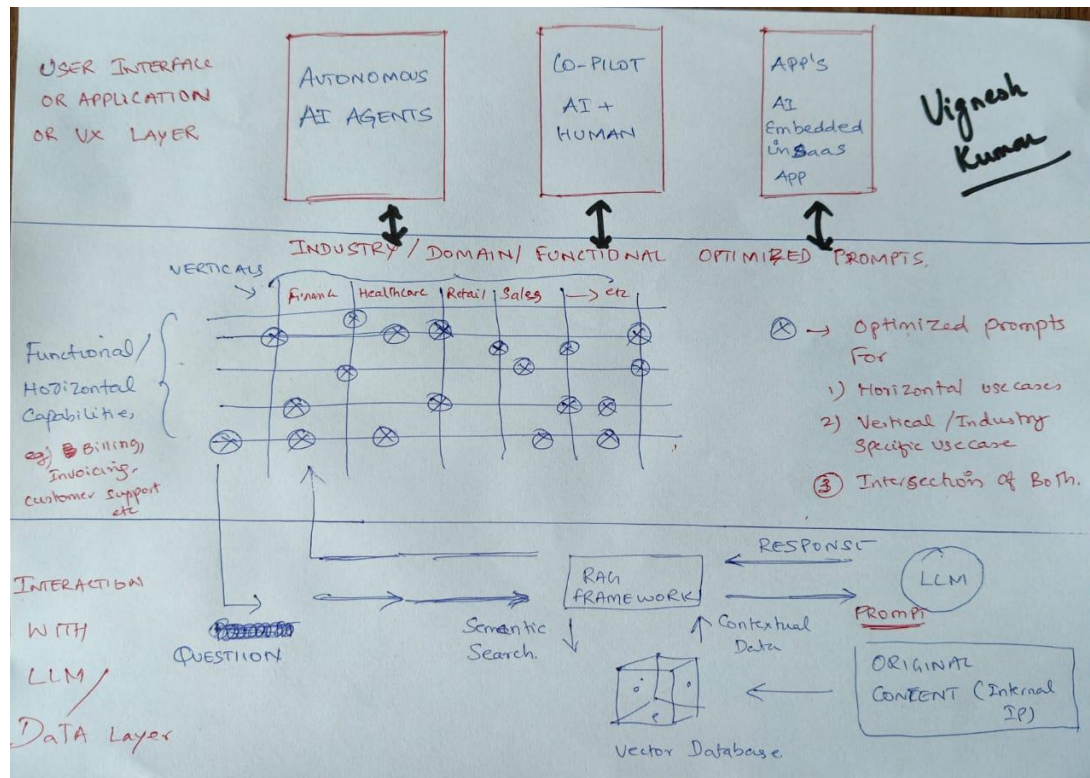 USER INTERFACE
OR APPLICATION
OR UX LAYER
AUTONOMOUS
AI AGENTS
CO-PILOT
AI +
HUMAN
APP'S
AI
Embedded
in Saas
APP
Vignesh
Kumar
INDUSTRY / DOMAIN / FUNCTIONAL OPTIMIZED PROMPTS.
VERTICALS
Finance Healthcare Retail Sales → etc
Functional /
Horizontal
Capabilities,
eg) Billing,
Invoicing,
Customer Support
etc
⊗ → Optimized prompts
For
1) Horizontal use cases
2) Vertical / Industry
Specific usecase
③ Intersection of Both.
INTERACTION
WITH
LLM /
DATA Layer
QUESTION
Semantic
Search.
RAG
FRAMEWORK
RESPONSE
LLM
PROMPT
Contextual
Data
Vector Database
ORIGINAL
CONTENT (Internal
IP)